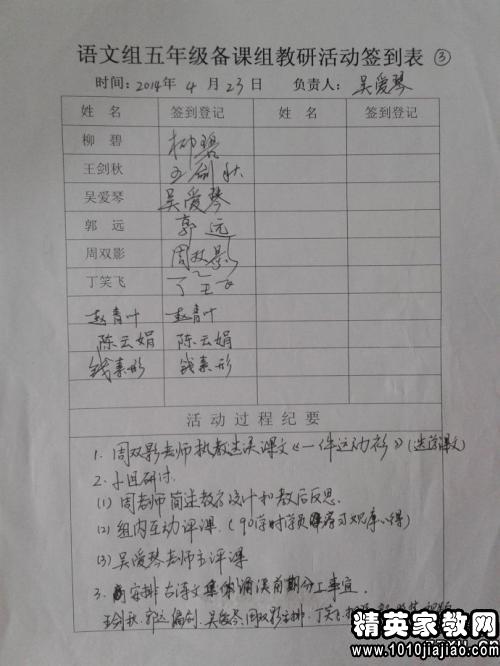 语文组五年级备课组教研活动签到表 ③
时间：2014年 4 月 23 日 负责人：吴爱琴
姓 名 签到登记 姓 名 签到登记
柳 碧 柳碧
王剑秋 王剑秋
吴爱琴 吴爱琴
郭 远 郭远
周双影 周双影
丁笑飞 丁笑飞
赵青叶 赵青叶
陈云娟 陈云娟
钱素彤 钱素彤
活 动 过 程 纪 要
1. 周双影老师执教选读课文《一件运动衫》(选读课文)
2. 小组研讨.
(1) 周老师简述教学设计和教后反思.
(2) 组内互动评课. (90学时学员 心得)
(3) 吴爱琴老师主评课
3. 安排古诗文集体诵读前期分工事宜.
王剑秋、郭远编创、吴爱琴、周双影主排、丁笑飞
精英家教网
www.1010jiajiao.com